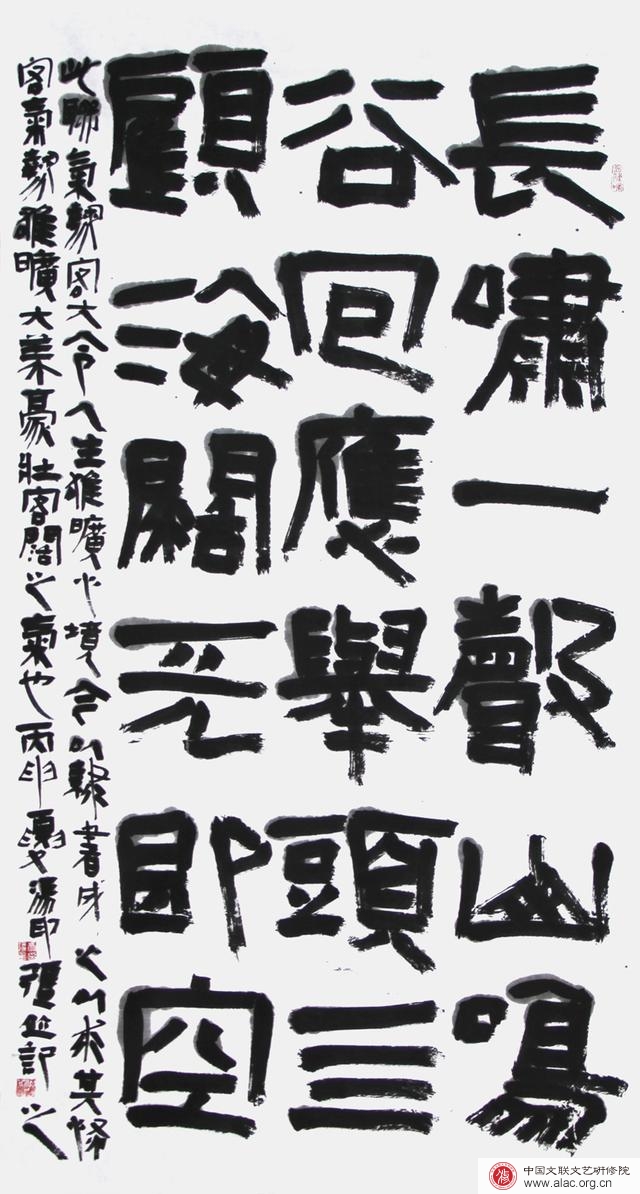 長嘯一聲山鳴
谷回應舉頭亖
顧海闊天即空
此聯氣勢宏大令人生雄曠之境今以隸書成之以求其
氣勢雄曠大豪壯闊之氣也丙申夏湯印張並記之
中国文联文艺研修院
www.alac.org.cn